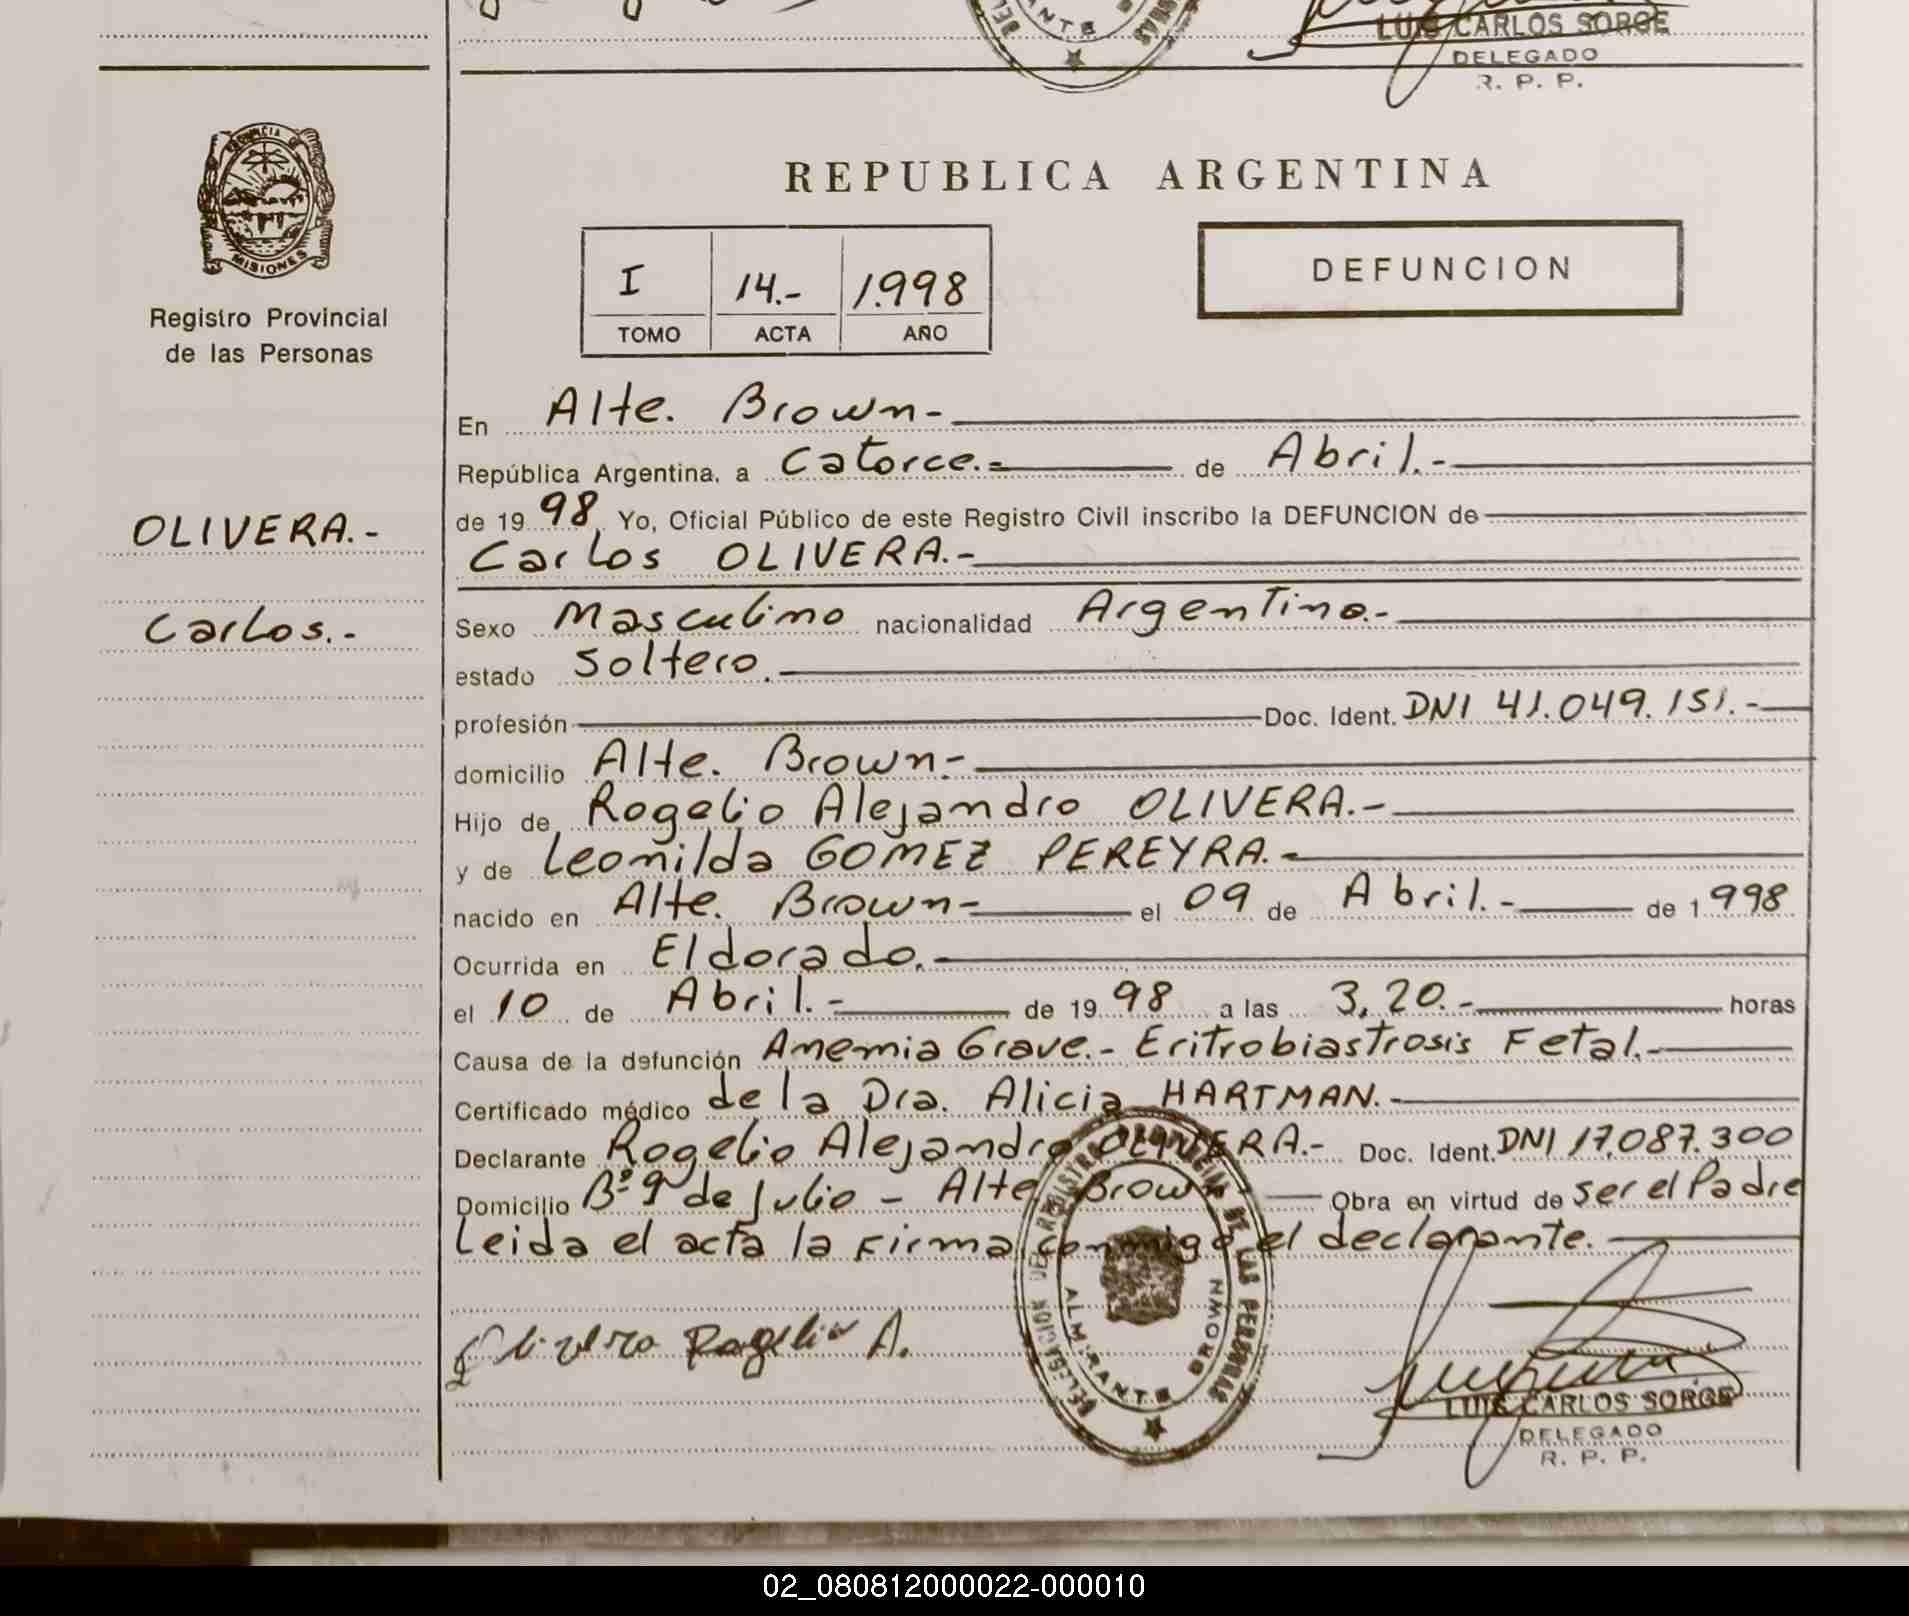 LUIS CARLOS SORGE
DELEGADO
R. P. P.
PROVINCIA DE
MISIONES
Registro Provincial
de las Personas
OLIVERA.-
Carlos.-
REPUBLICA ARGENTINA
I 14.- 1.998
TOMO ACTA AÑO
DEFUNCION
En Alte. Brown-
República Argentina, a Catorce.- de Abril.-
de 19 98, Yo, Oficial Público de este Registro Civil inscribo la DEFUNCION de
Carlos OLIVERA.-
Sexo Masculino nacionalidad Argentino.-
estado Soltero.
profesión Doc. Ident. DNI 41.049.151.-
domicilio Alte. Brown-
Hijo de Rogelio Alejandro OLIVERA.-
y de Leonilda GOMEZ PEREYRA.-
nacido en Alte. Brown- el 09 de Abril.- de 1998
Ocurrida en Eldorado.
el 10 de Abril.- de 1998 a las 3,20.- horas
Causa de la defunción Anemia Grave.- Eritrobiastrosis Fetal.-
Certificado médico de la Dra. Alicia HARTMAN.-
Declarante Rogelio Alejandro OLIVERA.- Doc. Ident. DNI 17.087.300
Domicilio Bº 9 de Julio - Alte. Brown- Obra en virtud de ser el Padre
Leida el acta la firma conmigo el declarante.
DELEGACION DEL REGISTRO PROVINCIAL DE LAS PERSONAS
ALMIRANTE BROWN
Olivera Rogelio A.
LUIS CARLOS SORGE
DELEGADO
R. P. P.
02_080812000022-000010